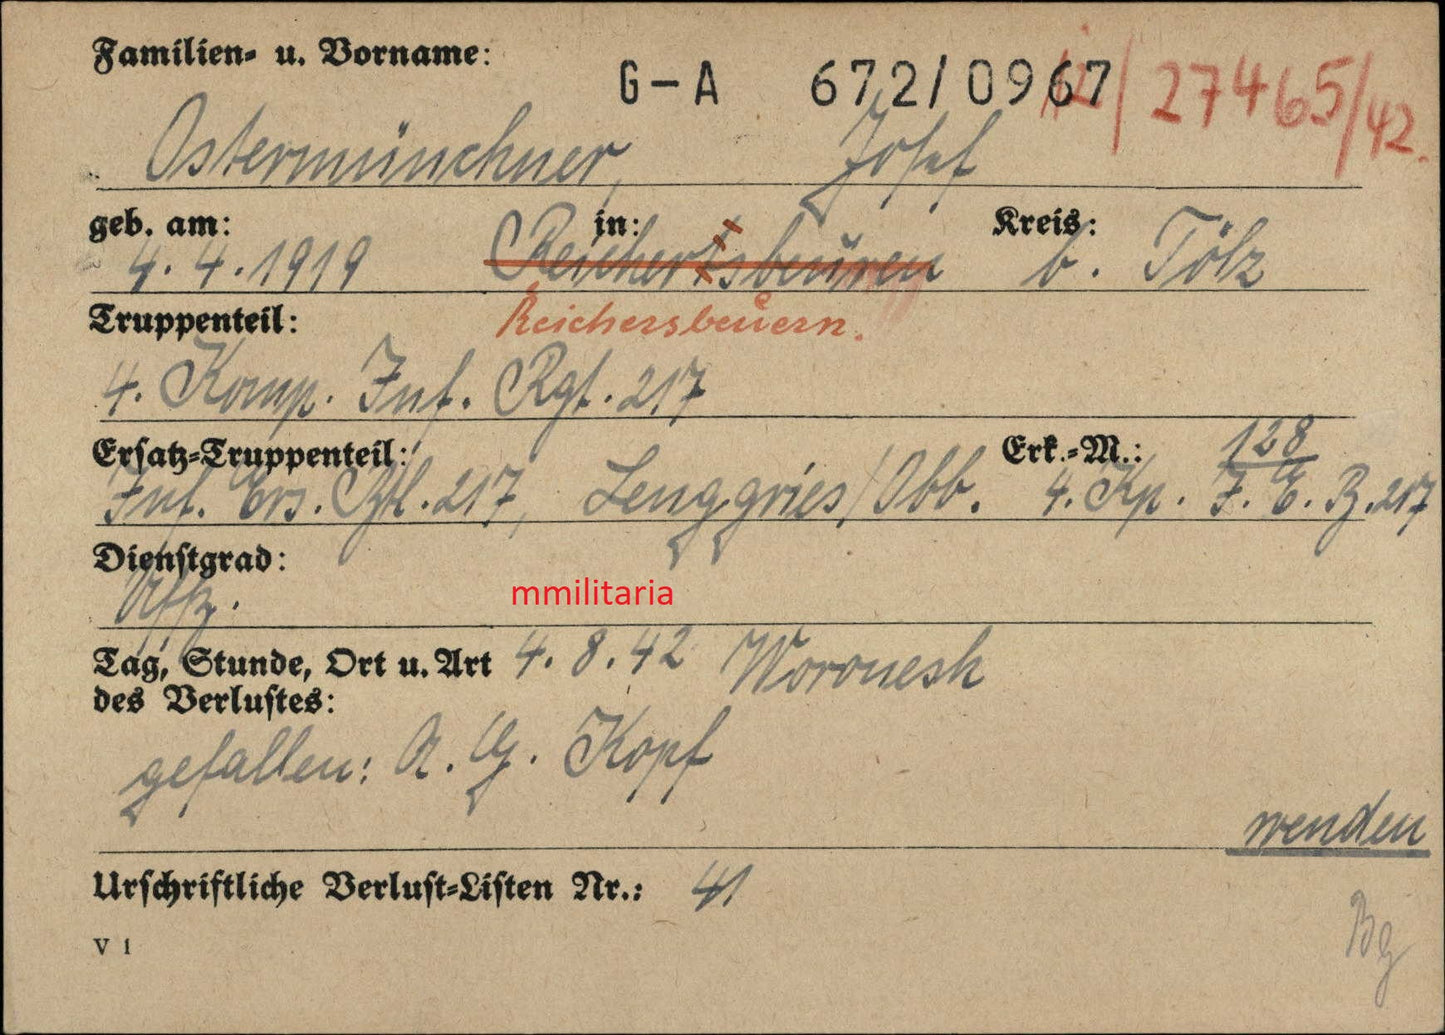 Familien- u. Vorname:
G-A 672/0967 12/27465/42.
Ostermünchner, Josef
geb. am: in: Kreis:
4.4.1919 Reichertsbeuren b. Tölz
Truppenteil: Reichersbeuern.
4. Komp. Inf. Rgt. 217
Ersatz-Truppenteil: Erk.-M.: 128
Inf. Ers. Btl. 217, Lenggries/Obb. 4. Kp. I. E. B. 217
Dienstgrad:
Uffz.
mmilitaria
Tag, Stunde, Ort u. Art 4.8.42 Woronesh
des Verlustes:
gefallen: A. G. Kopf
wenden
Urschriftliche Verlust-Listen Nr.: 41
V 1